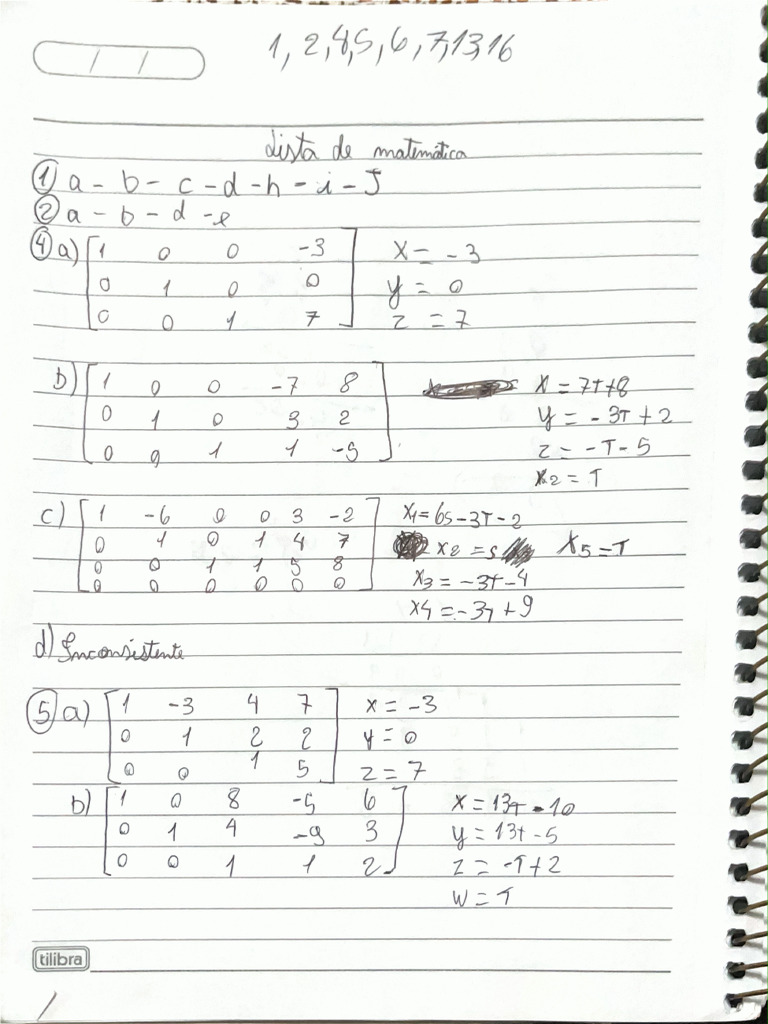 / /
1, 2, 4, 5, 6, 7, 13, 16
Lista de matemática
① a - b - c - d - h - i - J
② a - b - d - e
④ a) [1 0 0 -3] x = -3
0 1 0 0 y = 0
0 0 1 7 z = 7
b) [1 0 0 -7 8] x = 7T+8
0 1 0 3 2 y = -3T + 2
0 0 1 1 -5 z = -T - 5
x2 = T
c) [1 -6 0 0 3 -2] x1 = 6s - 3T - 2
0 1 0 1 4 7 x2 = s x5 = T
0 0 1 1 5 8 x3 = -3T - 4
0 0 0 0 0 0 x4 = -3T + 9
d) Inconsistente
⑤ a) [1 -3 4 7] x = -3
0 1 2 2 y = 0
0 0 1 5 z = 7
b) [1 0 8 -5 6] x = 13T - 10
0 1 4 -9 3 y = 13T - 5
0 0 1 1 2 z = -T + 2
w = T
tilibra